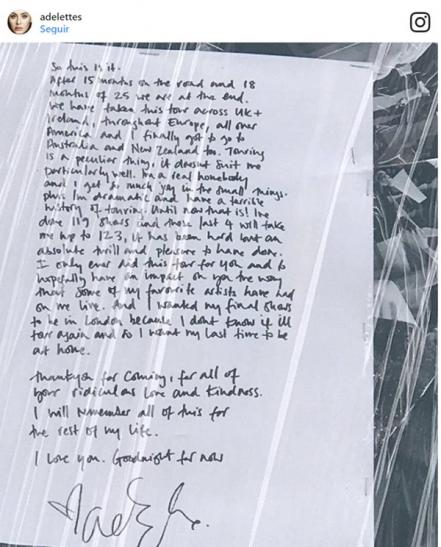 adelettes
Seguir
So this is it.
After 15 months on the road and 18
months of 25 we are at the end.
We have taken this tour across UK +
Ireland, throughout Europe, all over
America and I finally got to go to
Australia and New Zealand too. Touring
is a peculiar thing, it doesnt suit me
particularly well. Im a real homebody
and I get so much joy in the small things.
plus Im dramatic and have a terrible
history of touring. Until now that is! Ive
done 119 shows and these last 4 will take
me up to 123, it has been hard but an
absolute thrill and pleasure to have done.
I only ever did this tour for you and to
hopefully have an impact on you the way
that some of my favourite artists have had
on me live. And I wanted my final shows
to be in London because I dont know if ill
tour again and so I want my last time to be
at home.
Thankyou for coming, for all of
your ridiculous love and kindness.
I will remember all of this for
the rest of my life.
I love you. Goodnight for now
Adele